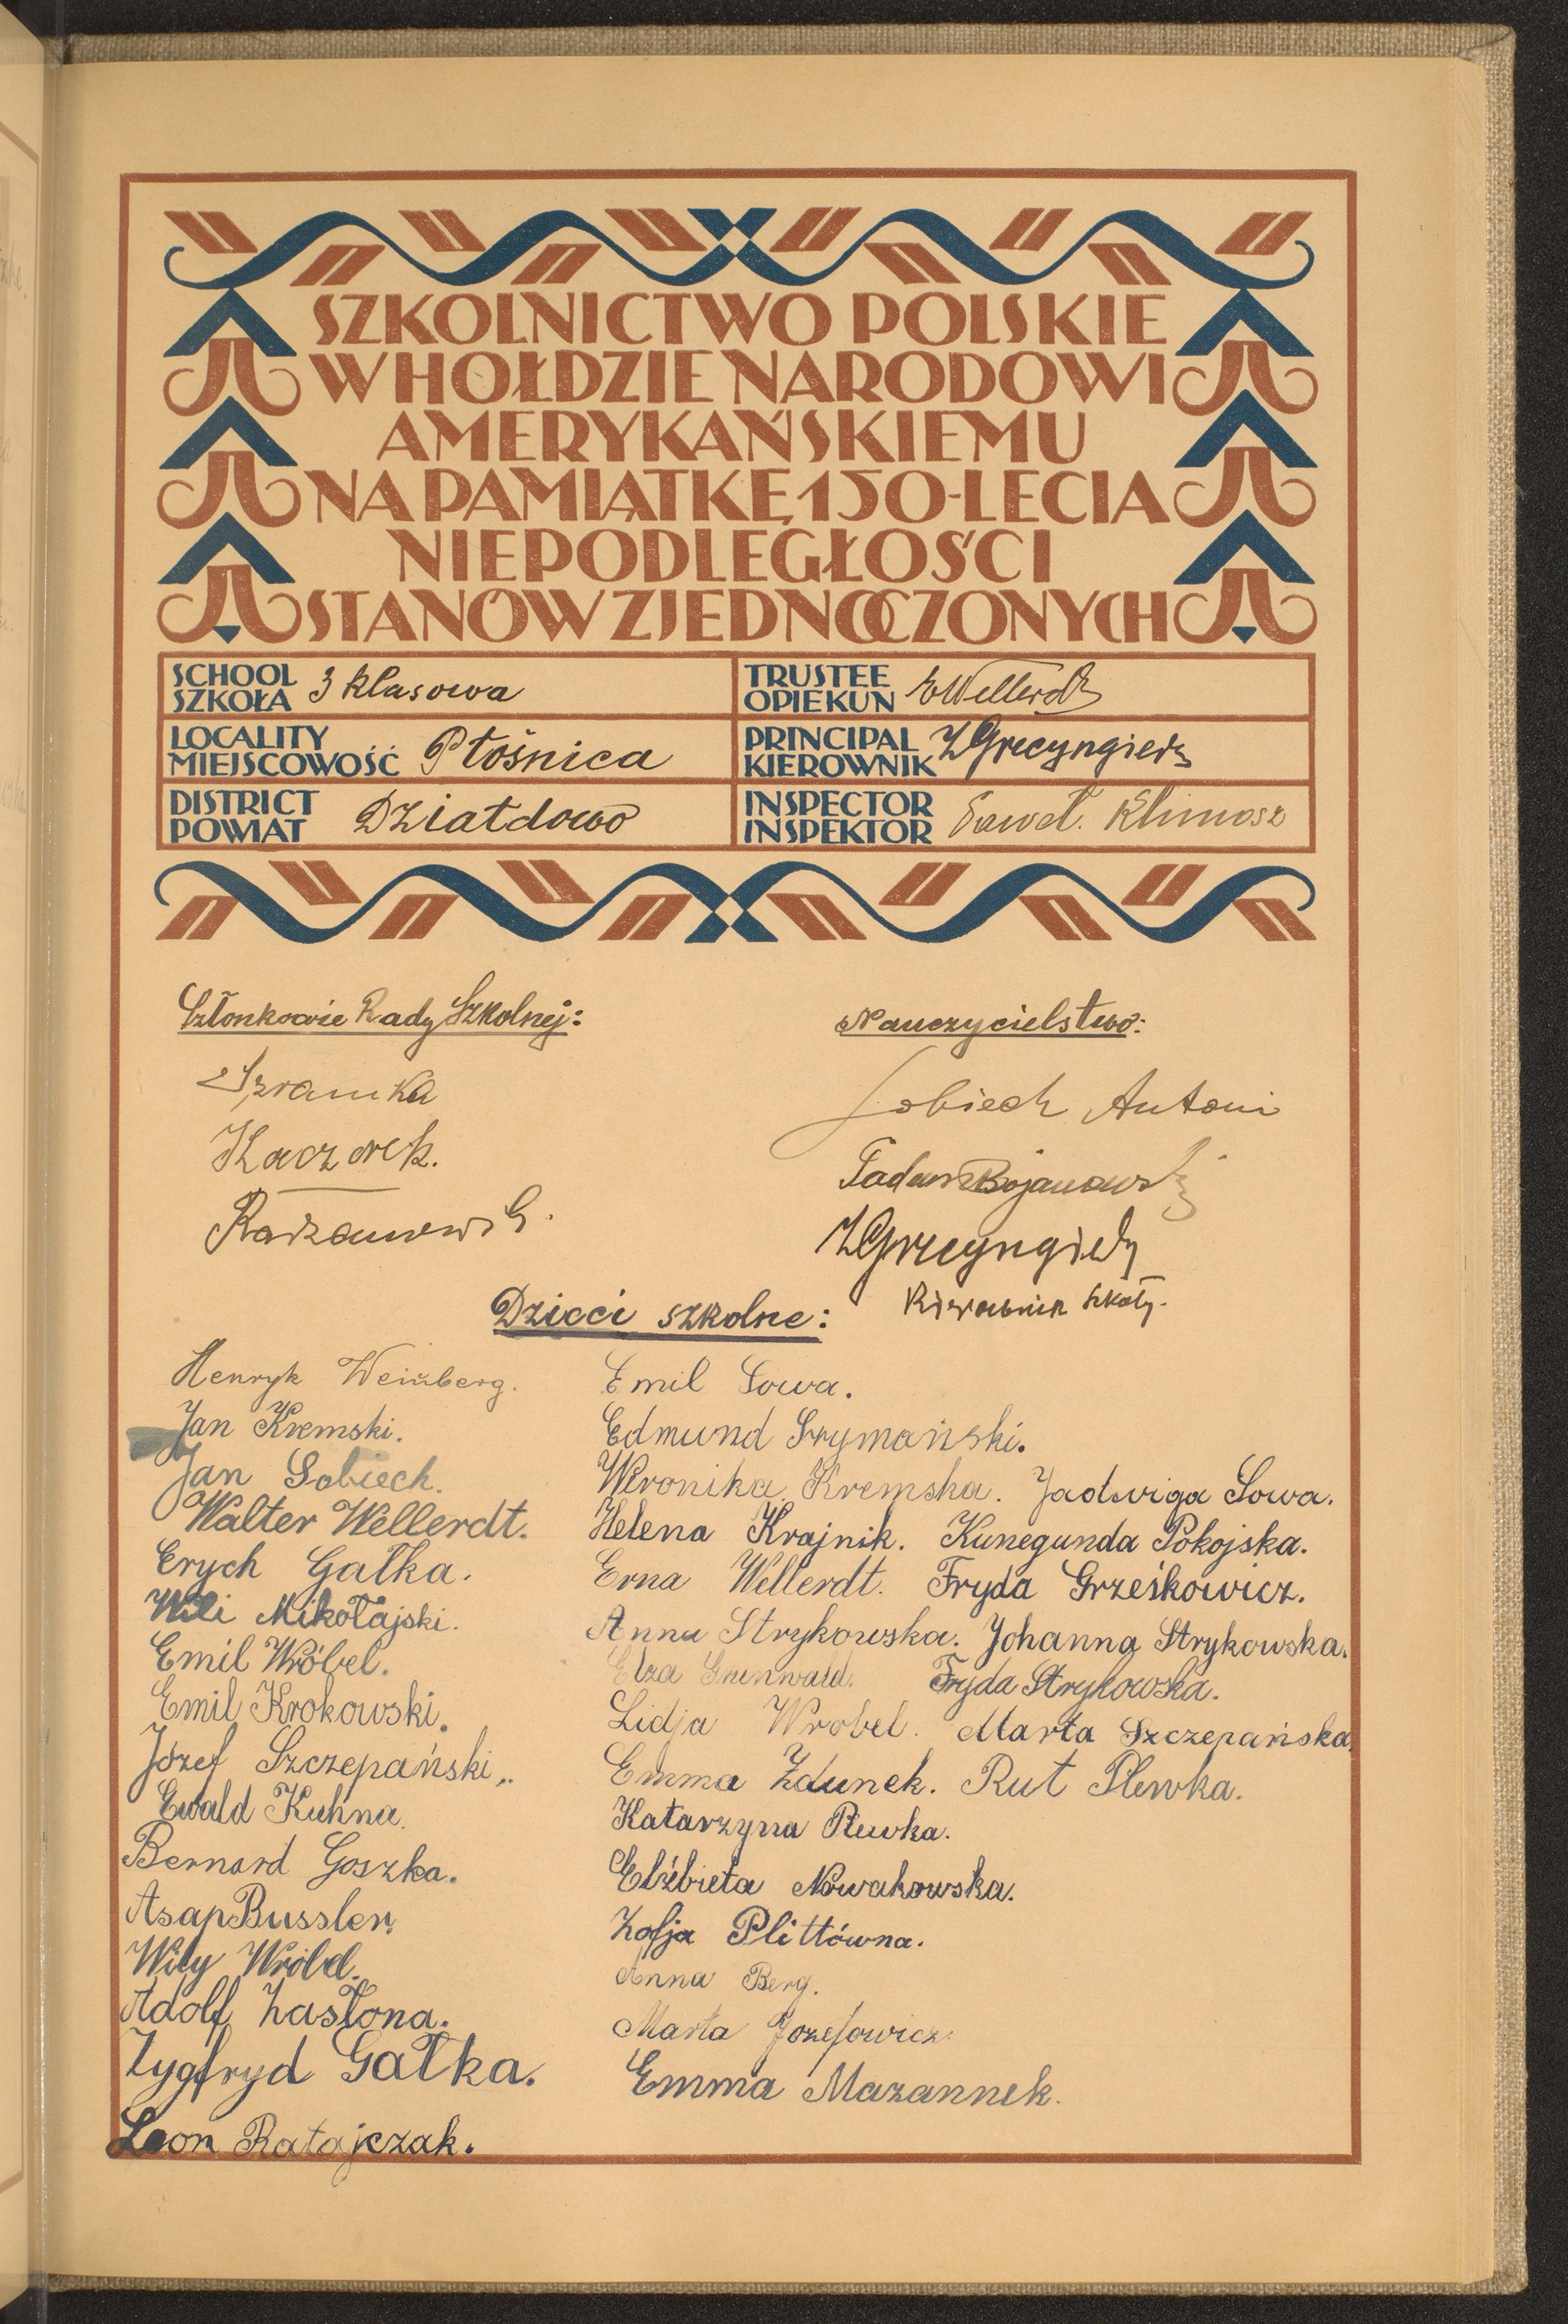 SZKOLNICTWO POLSKIE
W HOŁDZIE NARODOWI
AMERYKAŃSKIEMU
NA PAMIĄTKĘ 150-LECIA
NIEPODLEGŁOŚCI
STANÓW ZJEDNOCZONYCH
SCHOOL
SZKOŁA 3 klasowa
TRUSTEE
OPIEKUN EWellerdt
LOCALITY
MIEJSCOWOŚĆ Płośnica
PRINCIPAL
KIEROWNIK
DISTRICT
POWIAT Działdowo
INSPECTOR
INSPEKTOR Paweł. Klimosz
Członkowie Rady Szkolnej:
Szramka
Kaczorek.
Nauczycielstwo:
Sobiech Antoni
Kierownik szkoły.
Dzieci szkolne:
Henryk Weinberg.
Jan Kremski.
Jan Sobiech.
Walter Wellerdt.
Erych Gałka.
Wili Mikołajski.
Emil Wróbel.
Emil Krokowski.
Józef Szczepański.
Ewald Kuhna.
Bernard Goszka.
Asap Bussler.
Wily Wróbel.
Adolf Zasłona.
Zygfryd Gałka.
Leon Ratajczak.
Emil Sowa.
Edmund Srymański.
Weronika Kremska. Jadwiga Sowa.
Helena Krajnik. Kunegunda Pokojska.
Erna Wellerdt. Fryda Grześkowicz.
Anna Strykowska. Johanna Strykowska.
Elza Grunwald. Fryda Strykowska.
Lidja Wrobel. Marta Szczepańska.
Emma Zdunek. Rut Plewka.
Katarzyna Plewka.
Elżbieta Nowakowska.
Zofja Plittówna.
Anna Berg.
Marta Jozefowicz.
Emma Mazannek.